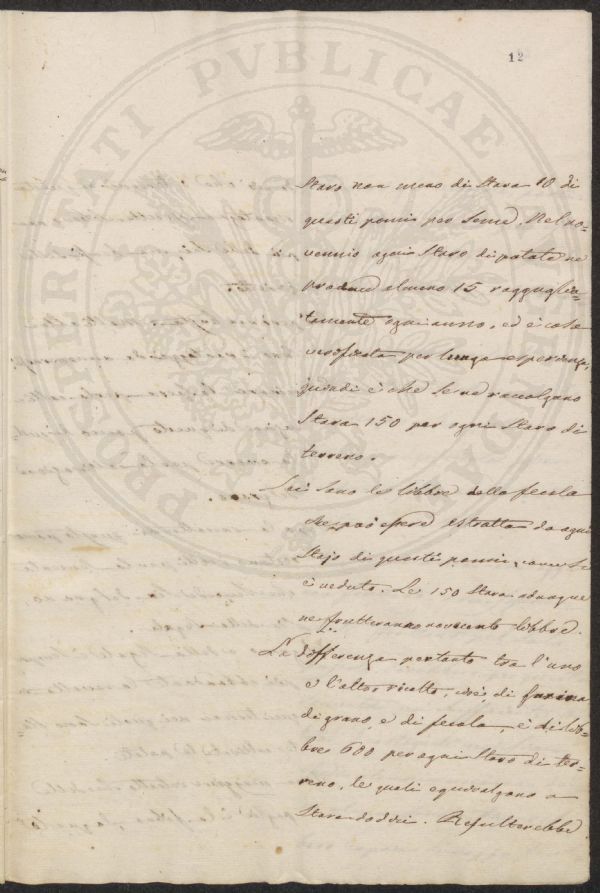 12
Staro non meno di Stara 10 di
questi pomi per seme. Nel no-
vennio ogni Staro di patate ne
produce almeno 15 ragguaglia-
tamente ogni anno, ed è cosa
verificata per lunga esperienza,
quindi è che se ne raccolgano
Stara 150 per ogni Staro di
terreno.
Sei sono le libbre della fecola
che può essere estratta da ogni
Stajo di questi pomi, come si
è veduto. Le 150 Stara adunque
ne frutteranno novecento libbre.
La differenza pertanto tra l'uno
e l'altro ricolto, cioè, di farina
di grano, e di fecola, è di lib-
bre 600 per ogni Staro di ter-
reno, le quali equivalgono a
Stara dodici. Resulterebbe
PROSPERITATI PVBLICAE